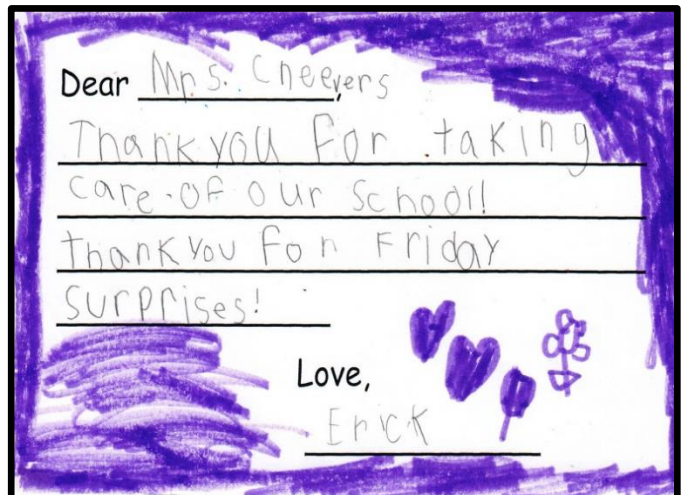 Dear Mrs. Cheevers,
Thank you for taking
care of our school!
thank you for Friday
surprises!
Love,
Erick